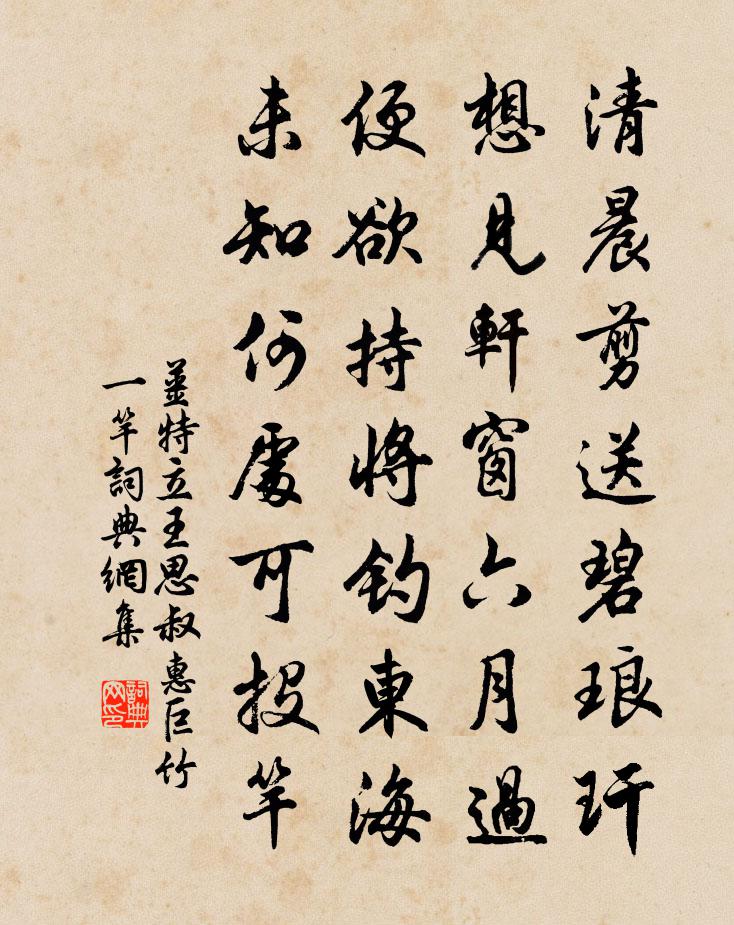 清晨剪送碧琅玕
想見軒窗六月過
便欲持將釣東海
未知何處可投竿
薑特立王思叔惠巨竹
一竿詞典網集
詞典
网印